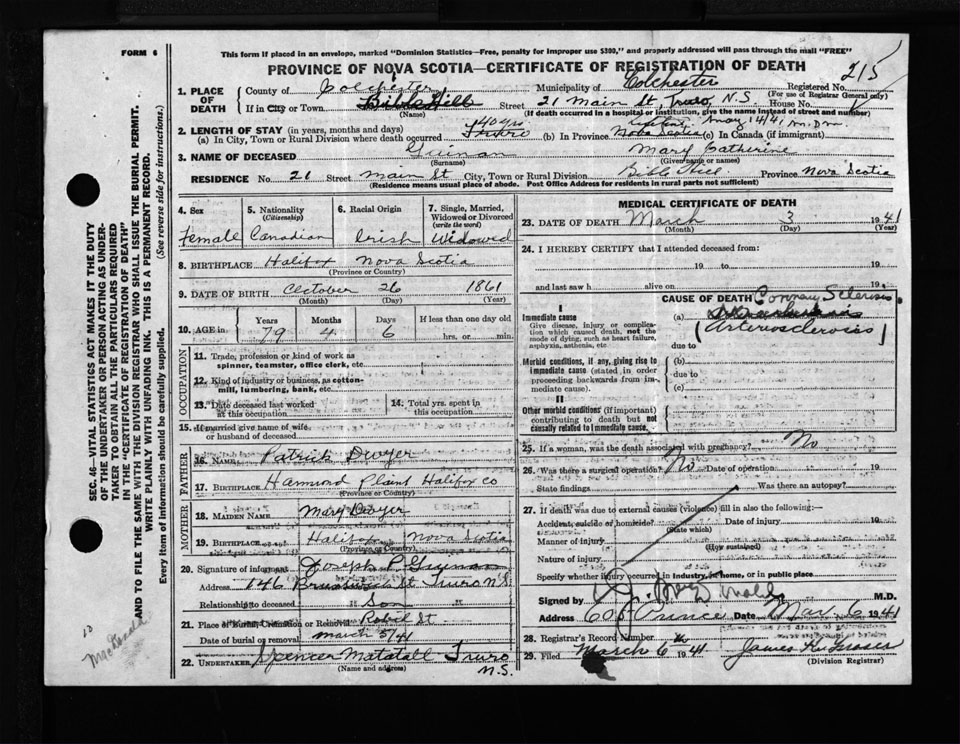 FORM 6
This form if placed in an envelope, marked "Dominion Statistics—Free, penalty for improper use $300," and properly addressed will pass through the mail "FREE"
PROVINCE OF NOVA SCOTIA—CERTIFICATE OF REGISTRATION OF DEATH
215
1. PLACE OF DEATH County of Colchester Municipality of Colchester Registered No.
(For use of Registrar General only)
If in City or Town Bible Hill Street 21 Main St, Truro, N.S House No.
(Name) (If death occurred in a hospital or institution, give the name instead of street and number)
2. LENGTH OF STAY (in years, months and days) 40 yrs May 14/41
(a) In City, Town or Rural Division where death occurred Truro (b) In Province Nova Scotia (c) In Canada (if immigrant)
3. NAME OF DECEASED Guinan Mary Catherine
(Surname) (Given name or names)
RESIDENCE No. 21 Street Main St City, Town or Rural Division Bible Hill Province Nova Scotia
(Residence means usual place of abode. Post Office Address for residents in rural parts not sufficient)
4. Sex Female
5. Nationality (Citizenship) Canadian
6. Racial Origin Irish
7. Single, Married, Widowed or Divorced (write the word) Widowed
8. BIRTHPLACE Halifax Nova Scotia
(Province or Country)
9. DATE OF BIRTH October 26 1861
(Month) (Day) (Year)
10. AGE in Years 79 Months 4 Days 6 If less than one day old hrs. or min.
OCCUPATION
11. Trade, profession or kind of work as spinner, teamster, office clerk, etc.
12. Kind of industry or business, as cotton-mill, lumbering, bank, etc.
13. Date deceased last worked at this occupation
14. Total yrs. spent in this occupation
15. If married give name of wife or husband of deceased
FATHER
16. NAME Patrick Dwyer
17. BIRTHPLACE Hammond Plains Halifax Co
(Province or Country)
MOTHER
18. MAIDEN NAME Mary Dwyer
19. BIRTHPLACE Halifax Nova Scotia
(Province or Country)
20. Signature of informant Joseph P Guinan
Address 146 Brunswick St Truro N.S.
Relationship to deceased Son
21. Place of Burial, Cremation or Removal Robie St
Date of burial or removal March 5/41
22. UNDERTAKER Spencer Matatall Truro N.S.
(Name and address)
MEDICAL CERTIFICATE OF DEATH
23. DATE OF DEATH March 3 1941
(Month) (Day) (Year)
24. I HEREBY CERTIFY that I attended deceased from:
19 to 19
and last saw h alive on 19
CAUSE OF DEATH Coronary Sclerosis
I
Immediate cause
Give disease, injury or complication which caused death, not the mode of dying, such as heart failure, asphyxia, asthenia, etc
(a) (Arteriosclerosis)
due to
Morbid conditions, if any, giving rise to immediate cause (stated in order proceeding backwards from immediate cause).
(b)
due to
(c)
II
Other morbid conditions (if important) contributing to death but not causally related to immediate cause.
25. If a woman, was the death associated with pregnancy? No
26. Was there a surgical operation? No Date of operation 19
State findings Was there an autopsy?
27. If death was due to external causes (violence) fill in also the following:
Accident, suicide or homicide? Date of injury 19
(State which)
Manner of injury
(How sustained)
Nature of injury
Specify whether injury occurred in Industry, in home, or in public place
Signed by M.D.
Address 605 Prince Date Mar 6 1941
28. Registrar's Record Number
29. Filed March 6 1941
(Division Registrar)
SEC. 46—VITAL STATISTICS ACT MAKES IT THE DUTY OF THE UNDERTAKER OR PERSON ACTING AS UNDERTAKER TO OBTAIN ALL THE PARTICULARS REQUIRED IN THE "CERTIFICATE OF REGISTRATION OF DEATH" AND TO FILE THE SAME WITH THE DIVISION REGISTRAR WHO SHALL ISSUE THE BURIAL PERMIT.
WRITE PLAINLY WITH UNFADING INK. THIS IS A PERMANENT RECORD.
Every item of information should be carefully supplied. (See reverse side for instructions.)